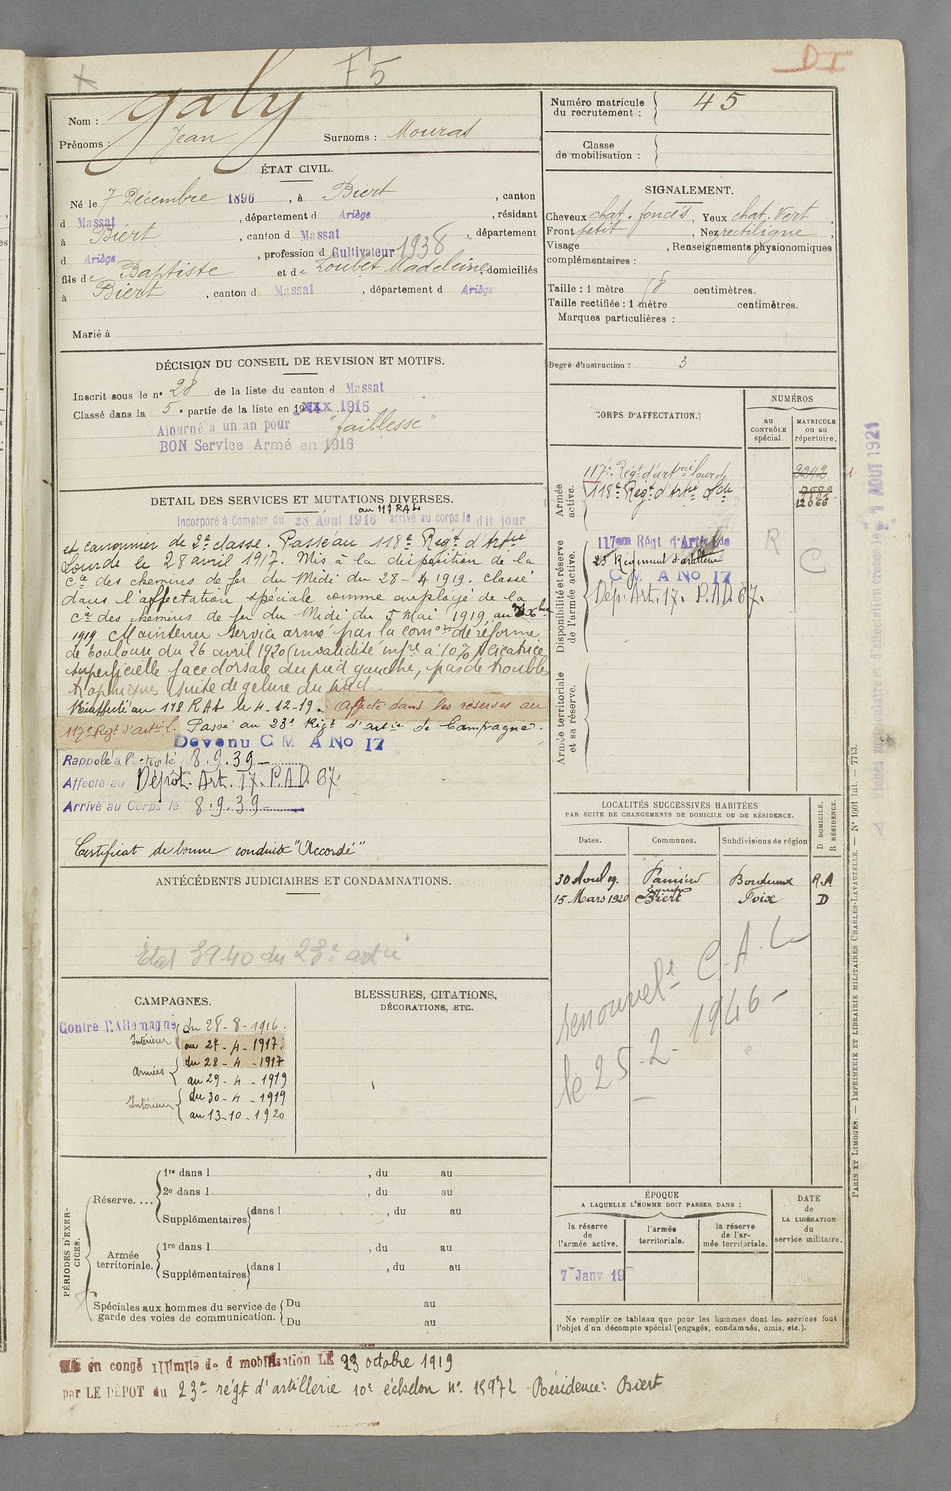 F5
D I
Nom : Galy
Prénoms : Jean Surnoms : Mouras
Numéro matricule du recrutement : 45
Classe de mobilisation :
ÉTAT CIVIL.
Né le 7 Décembre 1896, à Biert, canton
d Massat, département d Ariège, résidant
à Biert, canton d Massat, département
d Ariège, profession d Cultivateur 1938
fils de Baptiste et de Loubet Madeleine domiciliés
à Biert, canton d Massat, département d Ariège
Marié à
SIGNALEMENT.
Cheveux chat. foncés, Yeux chat. vert,
Front petit, Nez rectiligne,
Visage , Renseignements physionomiques
complémentaires :
Taille : 1 mètre 58 centimètres.
Taille rectifiée : 1 mètre centimètres.
Marques particulières :
Degré d'instruction : 3
DÉCISION DU CONSEIL DE REVISION ET MOTIFS.
Inscrit sous le nº 28 de la liste du canton d Massat
Classé dans la 5e partie de la liste en 1915
Ajourné a un an pour "faiblesse"
BON Service Armé en 1916
DETAIL DES SERVICES ET MUTATIONS DIVERSES.
au 117 RAL
Incorporé à Compter du 28 Août 1916 arrivé au corps le dit jour
et canonnier de 2e classe. Passé au 118e Regt d'Artie
Lourde le 28 avril 1917. Mis à la disposition de la
Cie des chemins de fer du Midi du 28-4 1919. Classé
dans l'affectation spéciale comme employé de la
Cie des chemins de fer du Midi du 5 Mai 1919, au
1919. Maintenu service armé par la comon de réforme
de Toulouse du 26 avril 1920 (invalidité infre à 10%) Cicatrice
superficielle face dorsale du pied gauche, pas de troubles
trophiques (suite de gelure du pied
Réaffecté au 118 RAL le 4-12-19. Affecté dans les réserves au
117e Régt d'artil. Passé au 23e Régt d'artie de Campagne.
Devenu C M A No 17
Rappelé à l'activité 8.9.39
Affecté au Dépôt. Art. 17. P.A.D. 67.
Arrivé au Corps le 8.9.39
Certificat de bonne conduite "Accordé"
CORPS D'AFFECTATION.
NUMÉROS
AU CONTRÔLE spécial.
MATRICULE ou au répertoire.
Armée active.
117e Régt d'artrie lourde
118e Regt d'Artie Lde
12066
Disponibilité et réserve de l'armée active.
117eme Régt d'Artillerie
23 Régiment d'artillerie
C M A No 17
Dép. Art. 17. P.A.D. 67.
R
C
Armée territoriale et sa réserve.
ANTÉCÉDENTS JUDICIAIRES ET CONDAMNATIONS.
Etat 3940 du 23e artie
LOCALITÉS SUCCESSIVES HABITÉES
PAR SUITE DE CHANGEMENTS DE DOMICILE OU DE RÉSIDENCE.
Dates. Communes. Subdivisions de région D DOMICILE. R RÉSIDENCE.
30 Avril 19. Pamiers Bordeaux R.A
15 Mars 1920 Biert Foix D
renouvelt C.A.L
le 25-2-1946-
CAMPAGNES.
Contre l'Allemagne
Intérieur du 28-8-1916.
au 27-4-1917.
Armées du 28-4-1917
au 29-4-1919
Intérieur du 30-4-1919
au 13-10-1920
BLESSURES, CITATIONS,
DÉCORATIONS, ETC.
PÉRIODES D'EXERCICES.
Réserve.... 1re dans l , du au
2e dans l , du au
Supplémentaires dans l , du au
Armée territoriale. 1re dans l , du au
Supplémentaires dans l , du au
Spéciales aux hommes du service de garde des voies de communication. Du au
Du au
ÉPOQUE
A LAQUELLE L'HOMME DOIT PASSER DANS :
la réserve de l'armée active.
l'armée territoriale.
la réserve de l'armée territoriale.
DATE de LA LIBÉRATION du service militaire.
7 Janv 19
Ne remplir ce tableau que pour les hommes dont les services font
l'objet d'un décompte spécial (engagés, condamnés, omis, etc.).
PARIS ET LIMOGES. — IMPRIMERIE ET LIBRAIRIE MILITAIRES CHARLES-LAVAUZELLE. — Nº 1001 — 7713.
en congé illimité de démobilisation LE 23 octobre 1919
par LE DEPOT du 23e régt d'artillerie 10e échelon nº 15972 Résidence: Biert